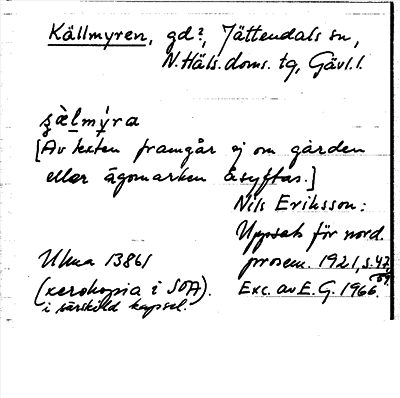 Källmyren, gd?, Jättendals sn,
N. Häls. doms. tg, Gävl. l.
şὲlmy̌ra
[Av texten framgår ej om gården
eller ägomarken åsyftas.]
Nils Eriksson:
Uppsats för nord.
prosem. 1921, s. 47,
Uluа 13861
(xerokopia i SOA).
i särskild kapsel.
Exc. av E. G. 1966.